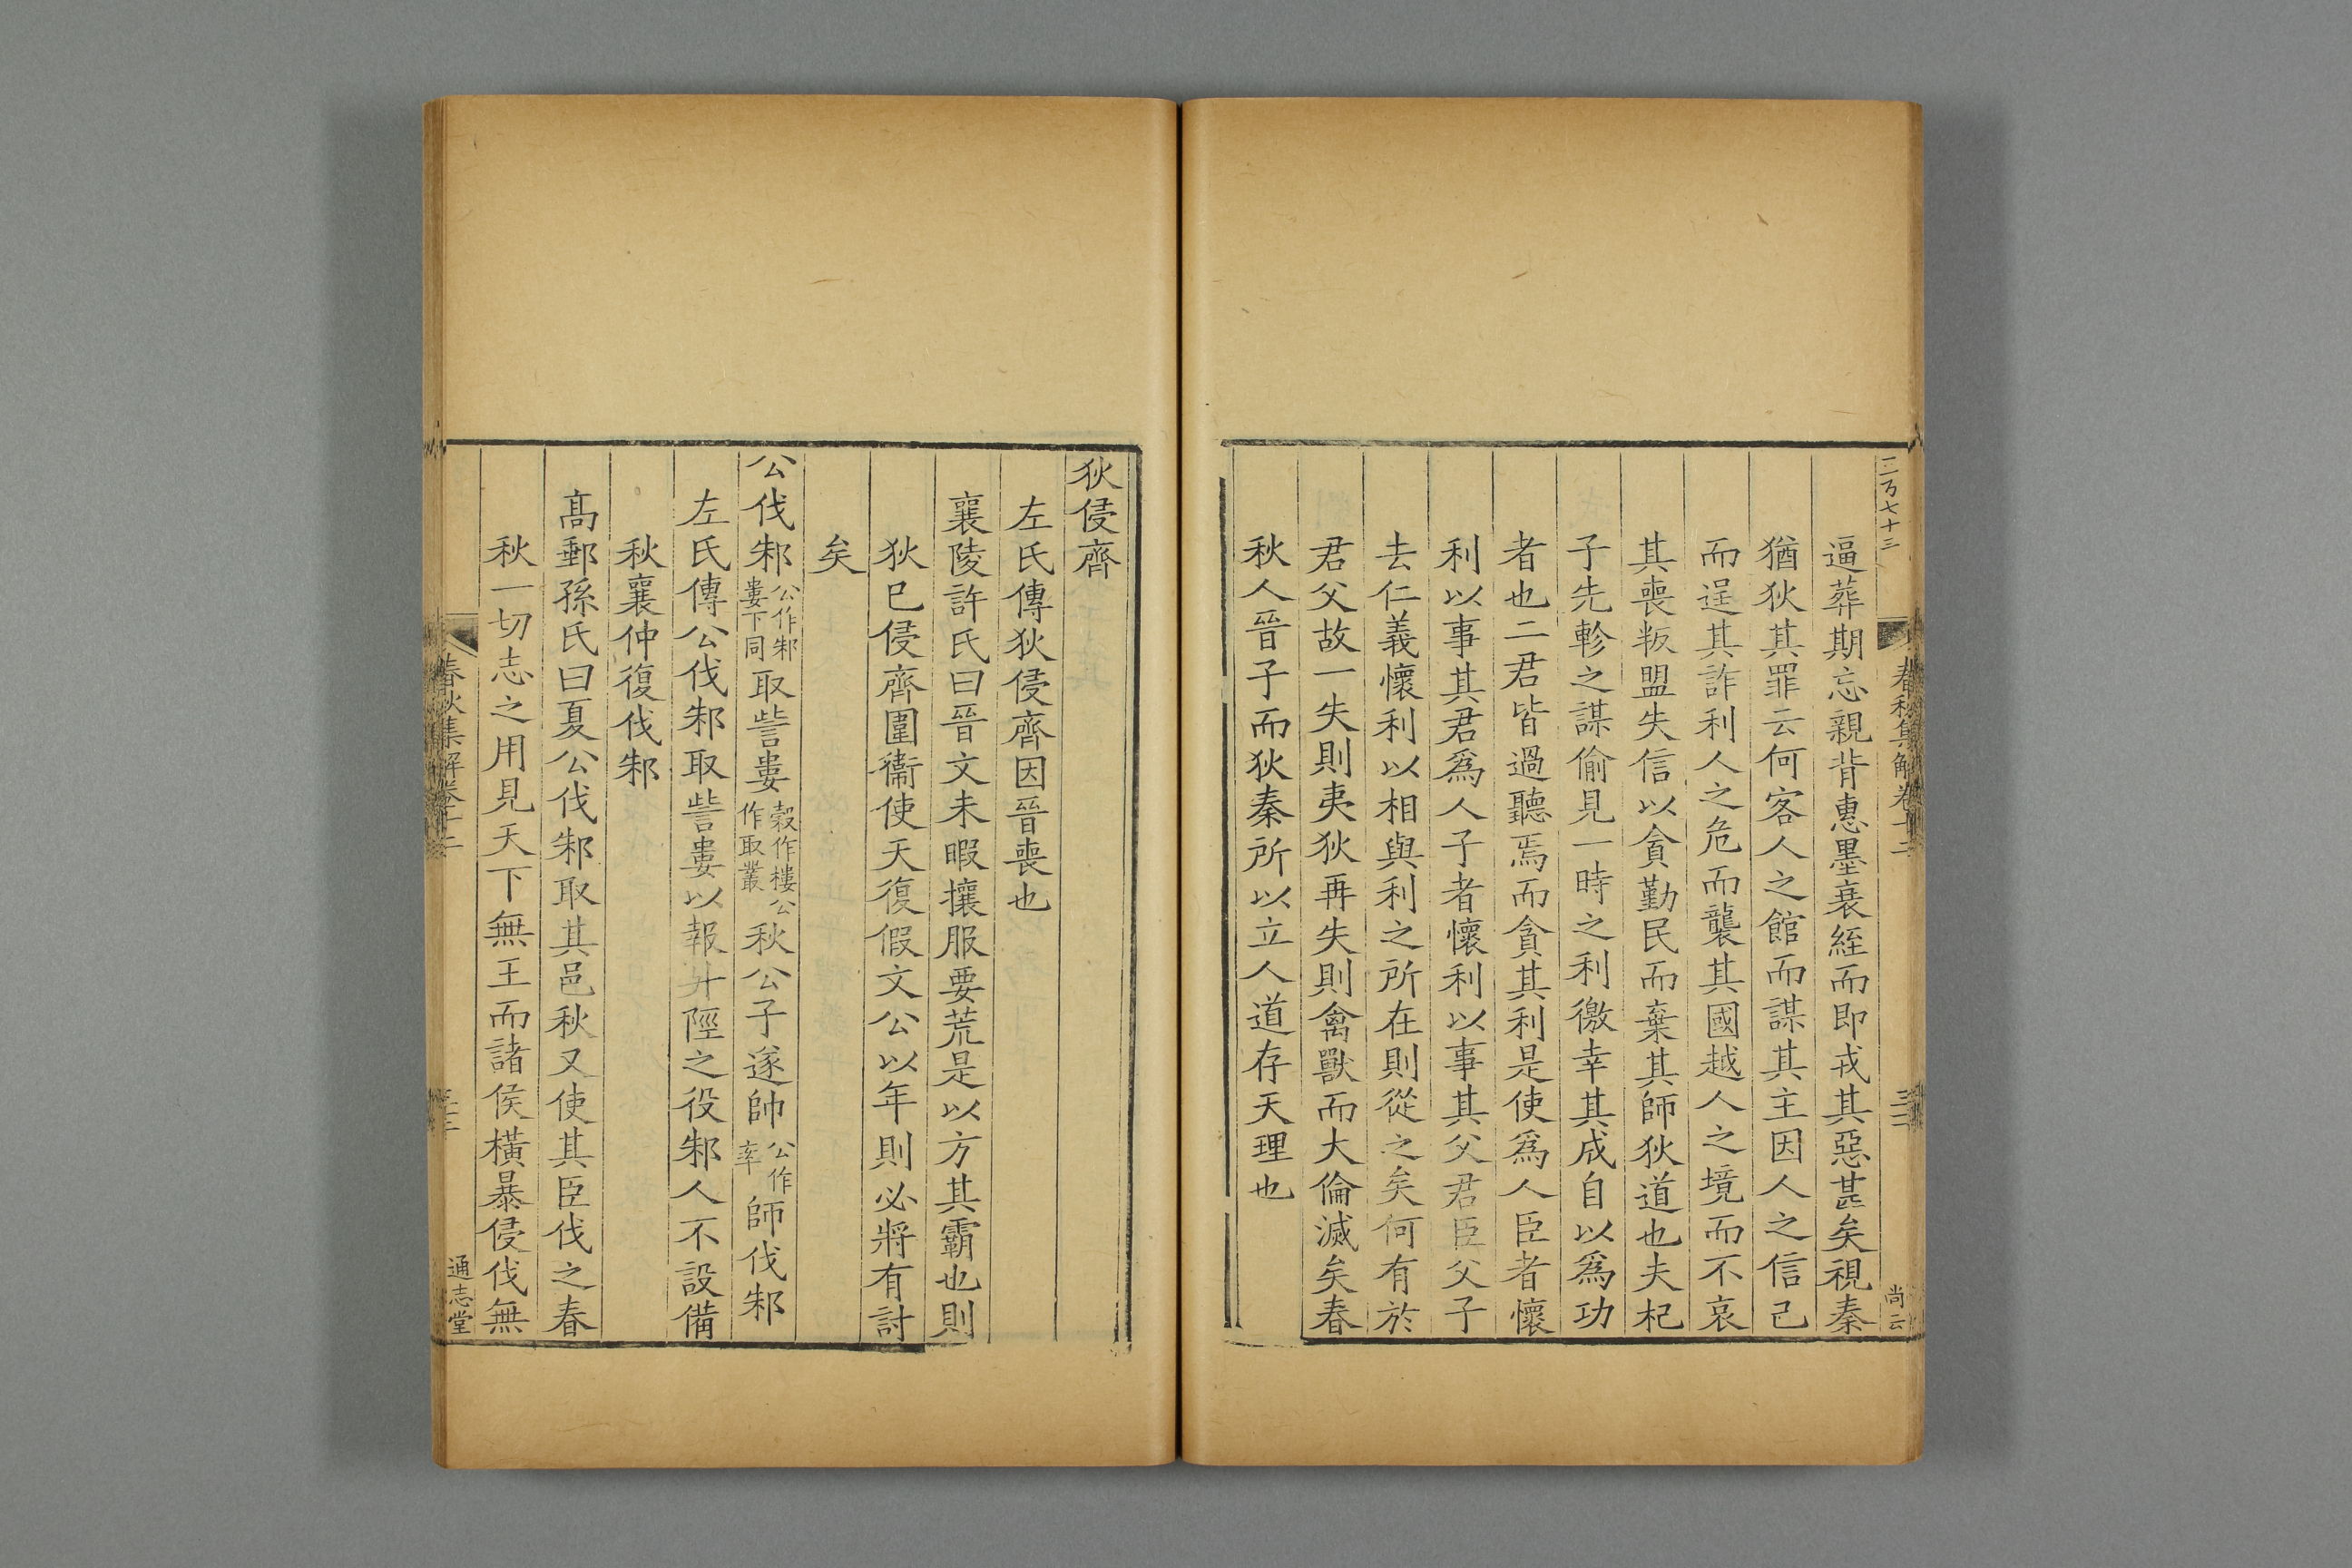 二万七十三
春秋集解卷十二
尚云
逼葬期忘親背惠墨衰絰而即戎其惡甚矣視秦
猶狄其罪云何客人之館而謀其主因人之信己
而逞其詐利人之危而襲其國越人之境而不哀
其喪叛盟失信以貪勤民而棄其師狄道也夫杞
子先軫之謀偷見一時之利徼幸其成自以爲功
者也二君皆過聽焉而貪其利是使爲人臣者懷
利以事其君爲人子者懷利以事其父君臣父子
去仁義懷利以相與利之所在則從之矣何有於
君父故一失則夷狄再失則禽獸而大倫滅矣春
秋人晉子而狄秦所以立人道存天理也
狄侵齊
左氏傳狄侵齊因晉喪也
襄陵許氏曰晉文未暇攘服要荒是以方其霸也則
狄已侵齊圍衞使天復假文公以年則必將有討
矣
公伐邾公作邾婁下同取訾婁穀作樓公作取叢秋公子遂帥公作率師伐邾
左氏傳公伐邾取訾婁以報升陘之役邾人不設備
秋襄仲復伐邾
髙郵孫氏曰夏公伐邾取其邑秋又使其臣伐之春
秋一切志之用見天下無王而諸侯橫暴侵伐無
春秋集解卷十二
通志堂